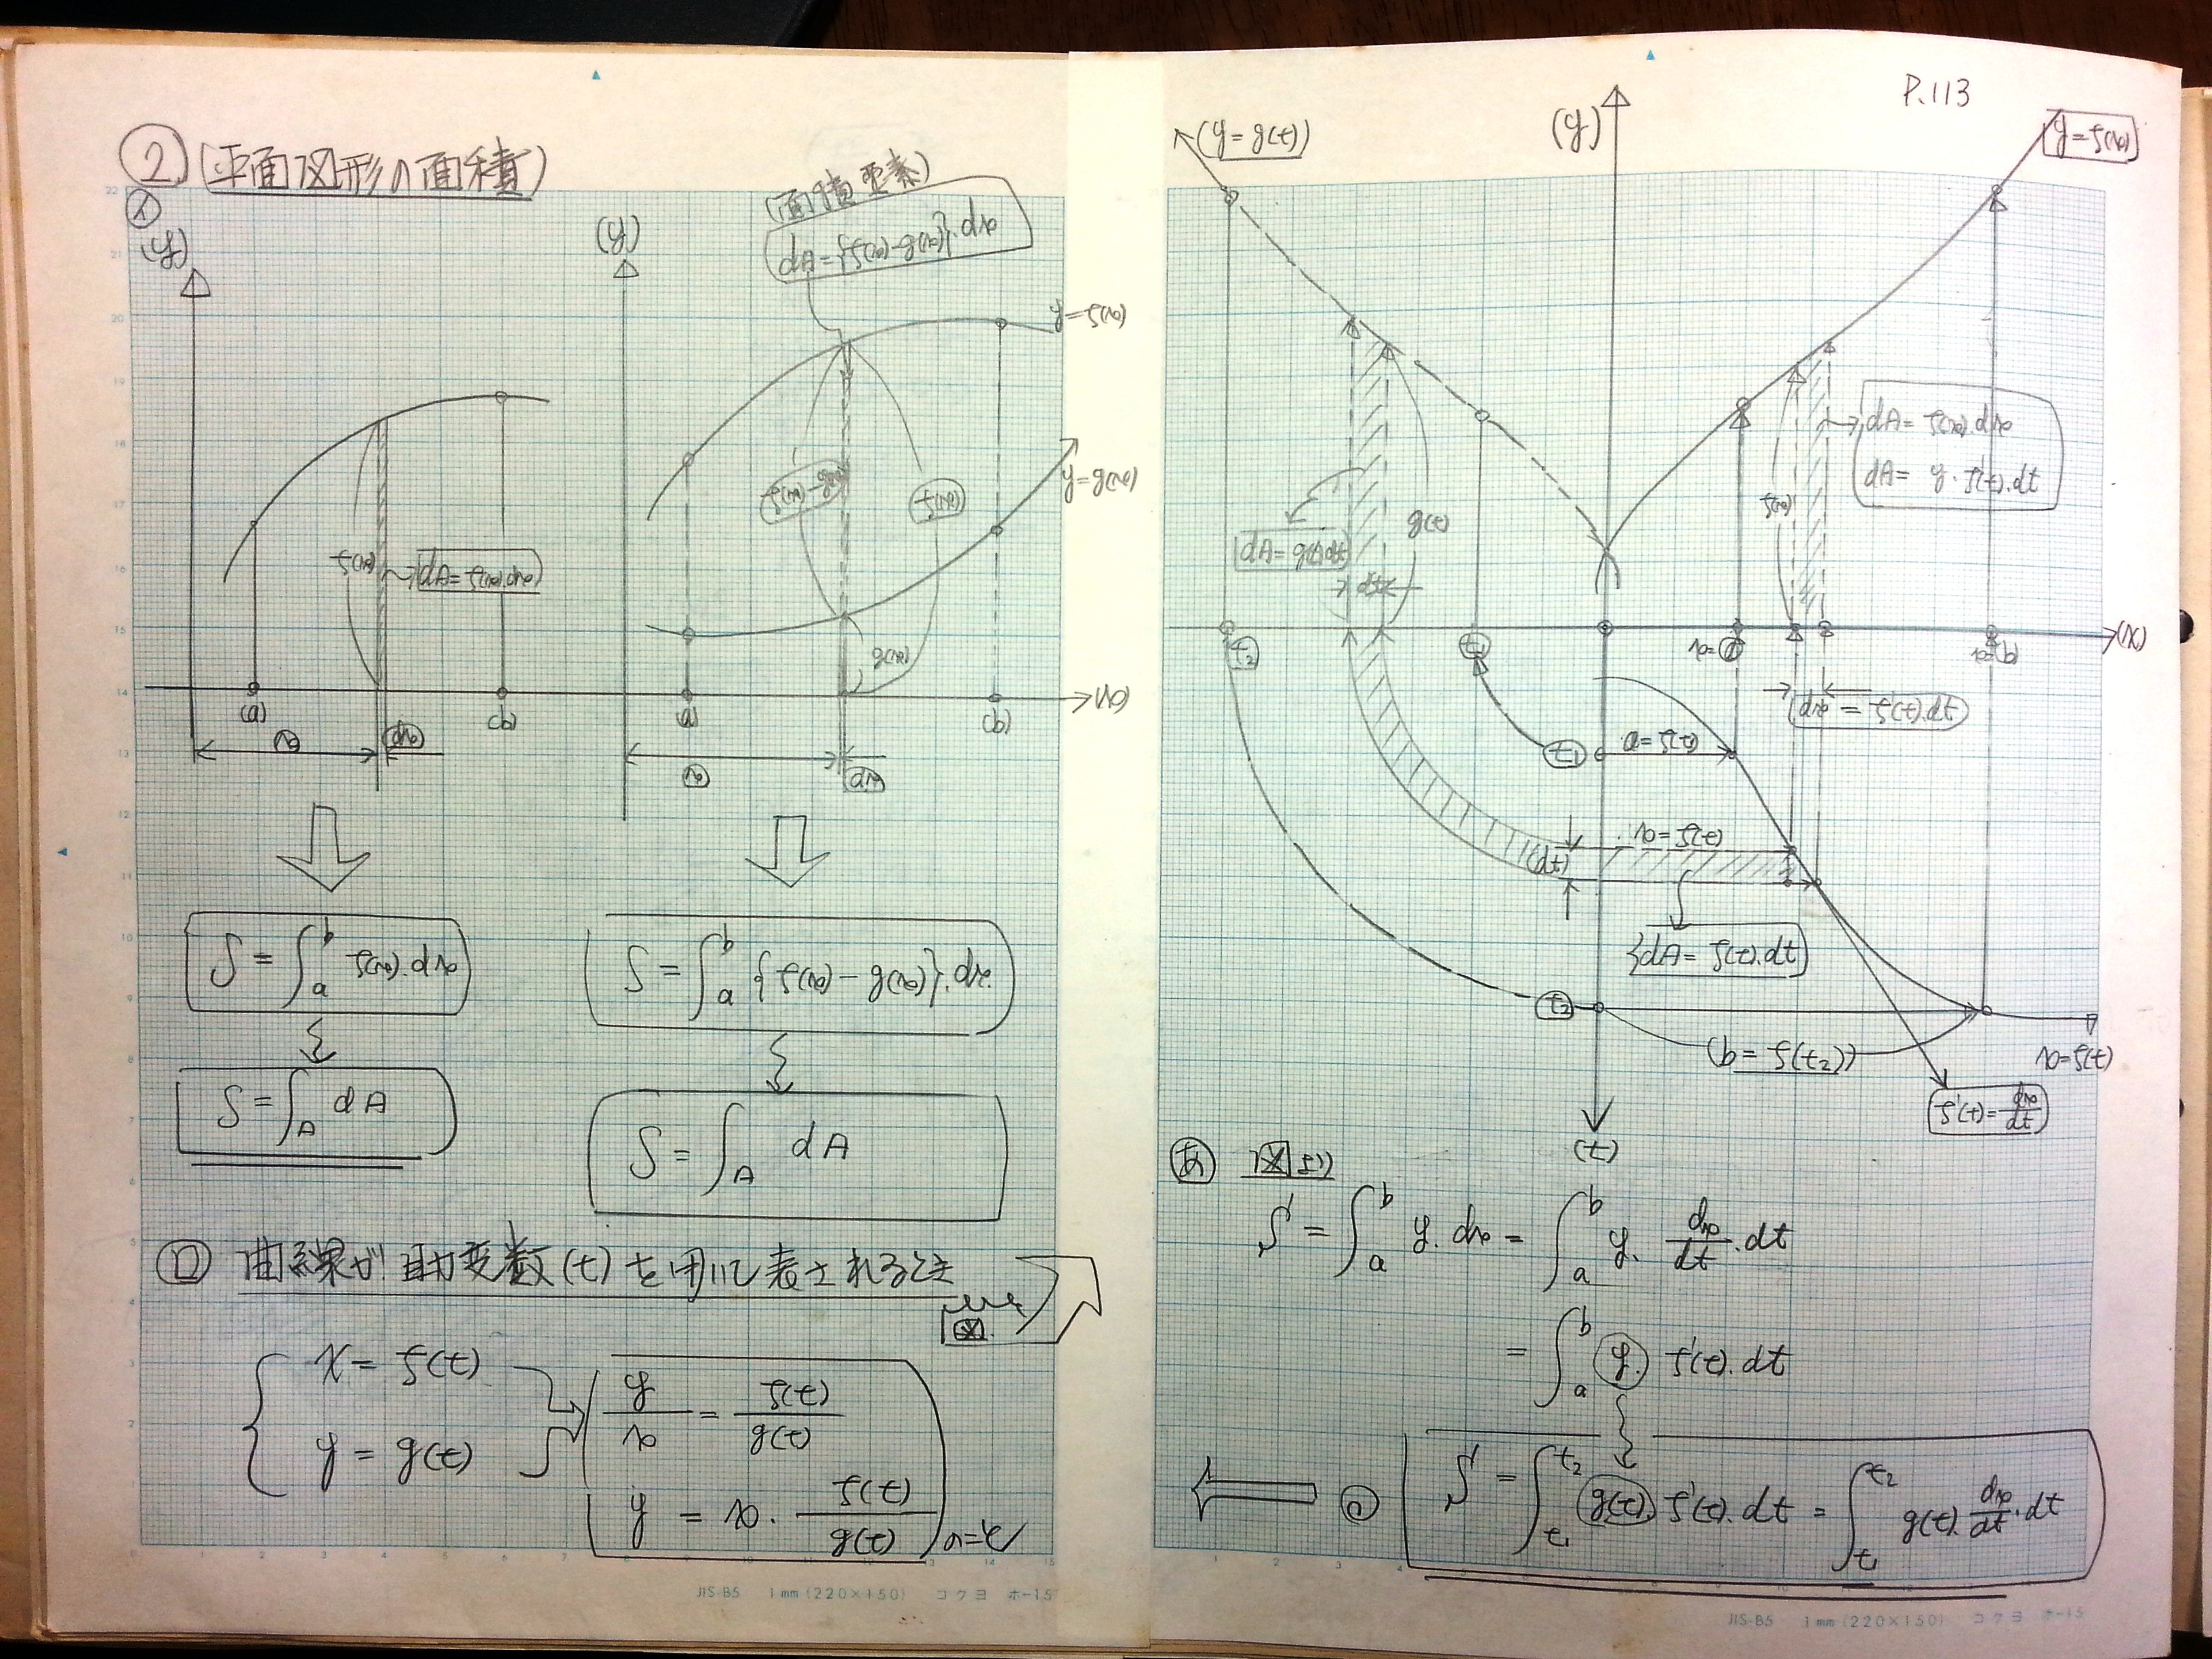 P.113
② (平面図形の面積)
㋑
(y)
(y)
(面積要素)
dA={f(x)-g(x)}.dx
y=f(x)
f(x)
dA=f(x).dx
f(x)-g(x)
f(x)
y=g(x)
g(x)
(a)
(b)
(a)
(b)
(x)
x
(dx)
x
dx
S=∫_a^b f(x).dx
S=∫_a^b {f(x)-g(x)}.dx.
S=∫_A dA
S=∫_A dA
㋺ 曲線が助変数(t)を用いて表されるとき
図.
x=f(t)
y=g(t)
y/x = f(t)/g(t)
y = x. f(t)/g(t)
(y=g(t))
(y)
y=f(x)
dA=f(x).dx
dA= y. f'(t).dt
f(x)
g(t)
dA=g(t).dt
dt
(x)
t₂
t₁
x=a
x=b
dx = f'(t).dt
t₁
a=f(t)
x=f(t)
(dt)
dA=f(t).dt
t₂
(b=f(t₂))
x=f(t)
f'(t)=dx/dt
(t)
あ 図より
S=∫_a^b y.dx=∫_a^b y. dx/dt .dt
=∫_a^b y. f'(t).dt
S=∫_t₁^t₂ g(t).f'(t).dt=∫_t₁^t₂ g(t). dx/dt .dt
JIS-B5 1mm(220×150) コクヨ ホ-15
JIS-B5 1mm(220×150) コクヨ ホ-15